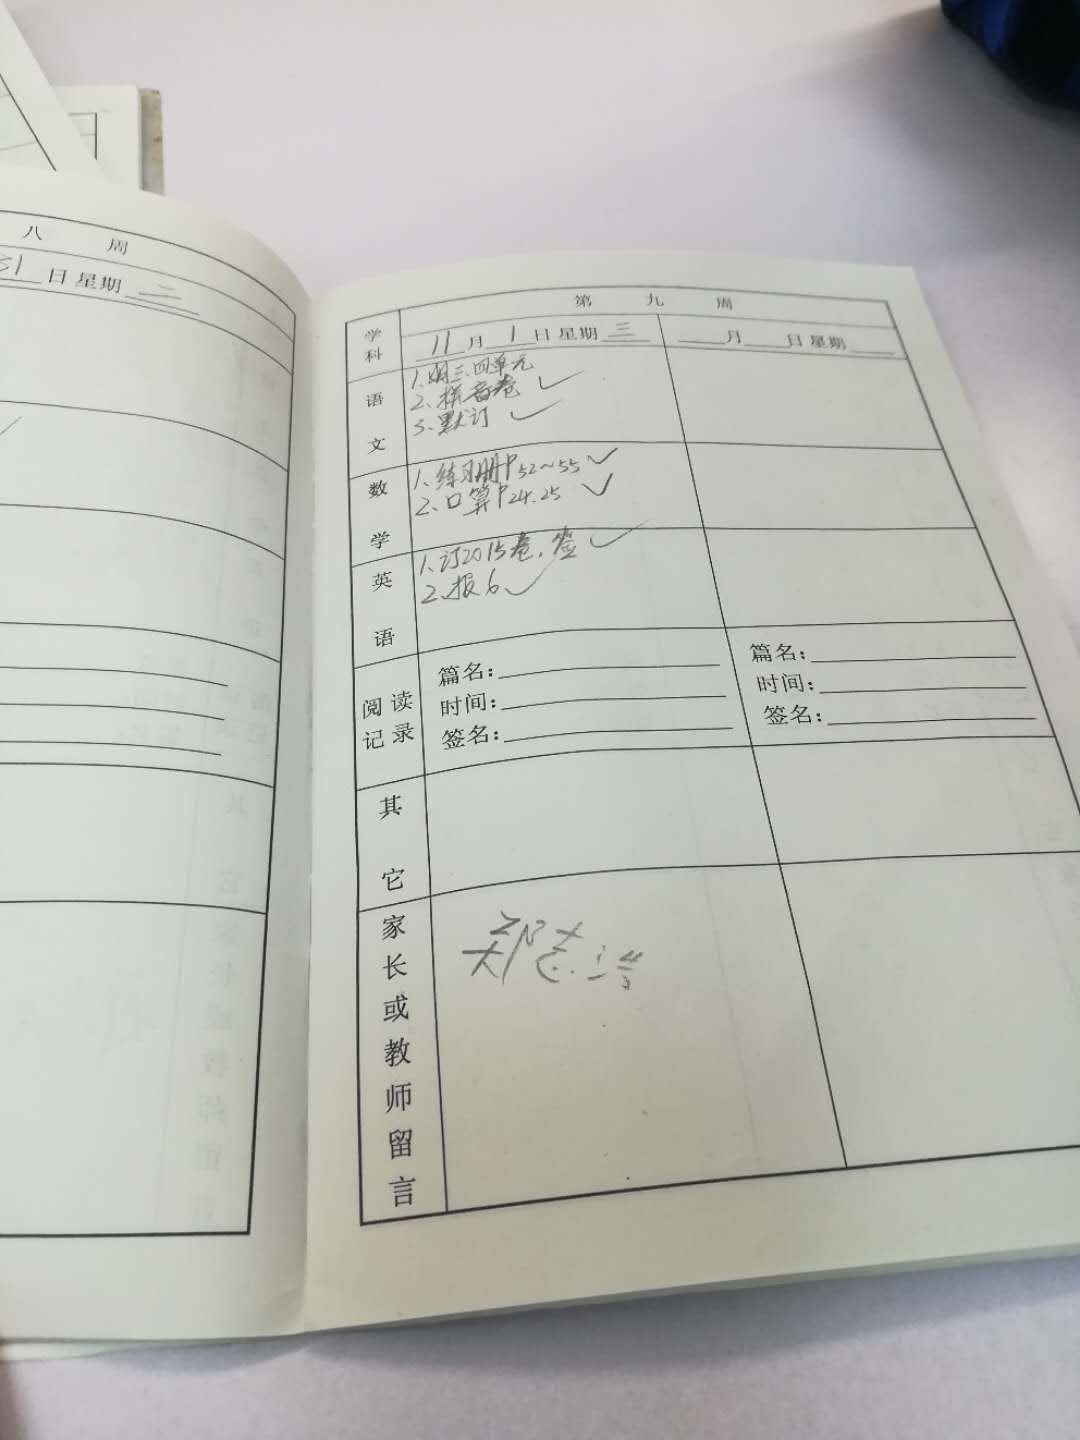 八 周
31 日 星期 二
第 九 周
学科
11 月 1 日 星期 三
月 日 星期
语文
1、明三.四单元
2、拼音卷 ✓
3、默订 ✓
数学
1、练习册P52~55 ✓
2、口算P24.25 ✓
英语
1、订2015卷，签 ✓
2、报6 ✓
阅读记录
篇名：
时间：
签名：
篇名：
时间：
签名：
其它
家长或教师留言
郑志